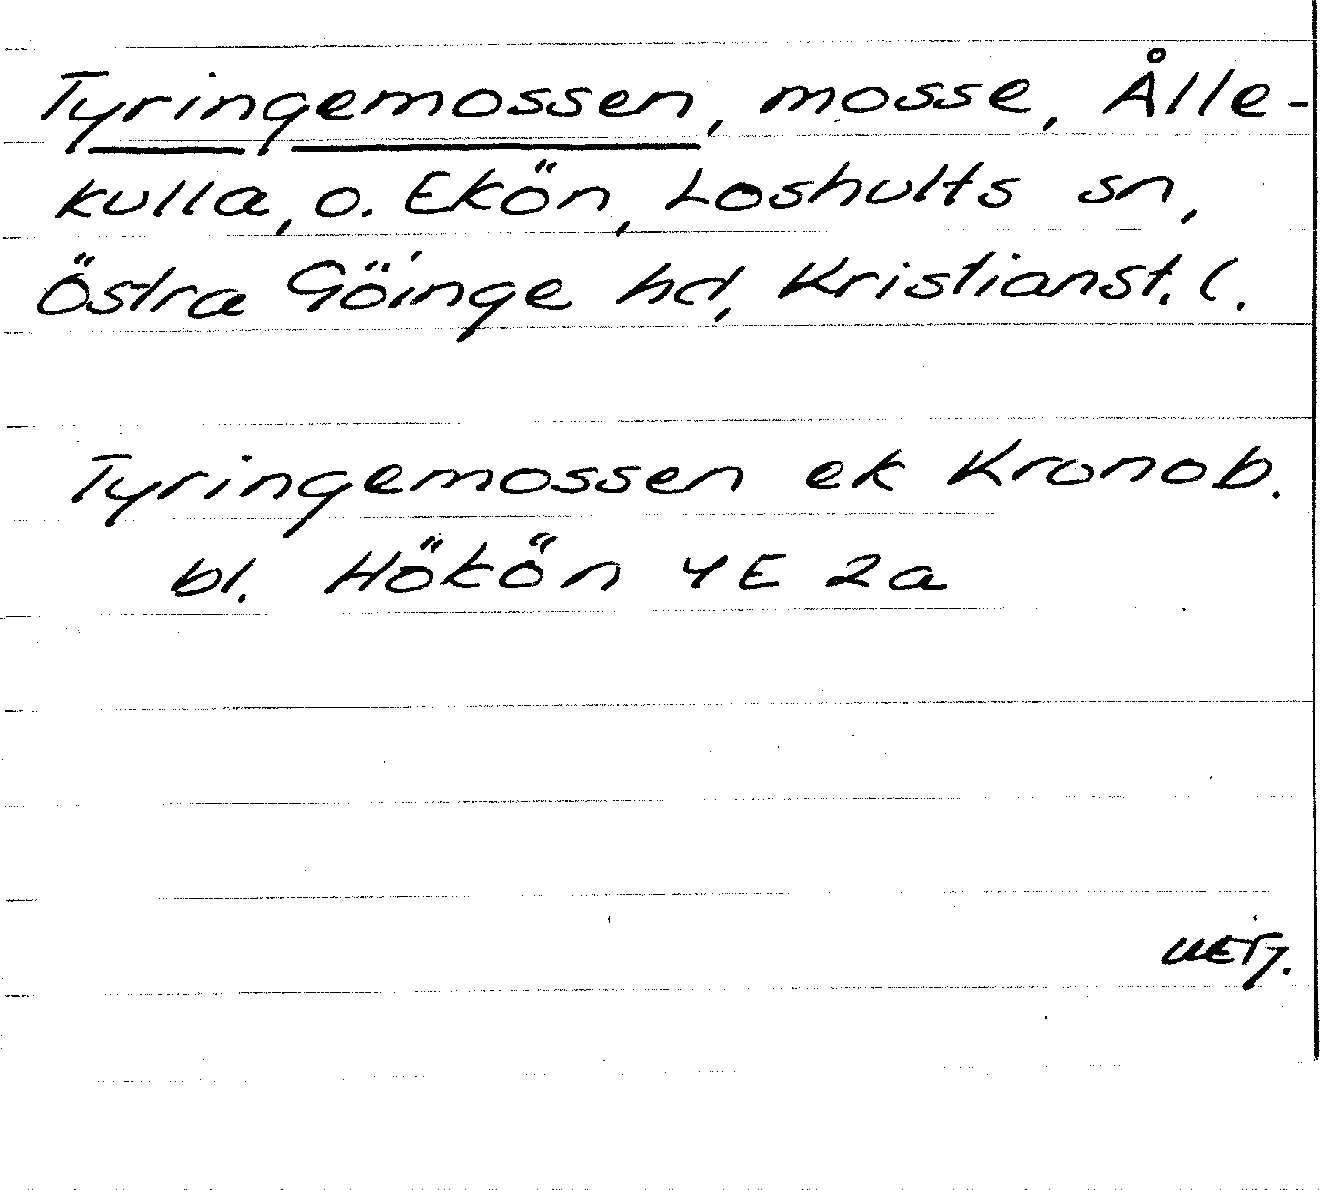 Tyringemossen, mosse, Ålle-
kulla, o. Ekön, Loshults sn,
Östra Göinge hd, Kristianst. l.
Tyringemossen ek Kronob.
bl. Hökön 4E 2a